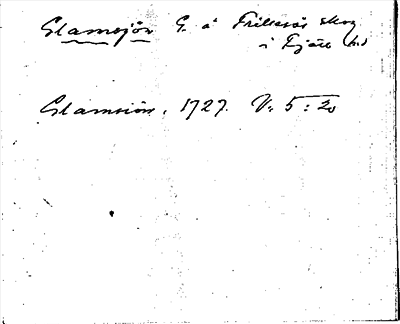 Glamsjön G. å Frillesås skog
i Fjäre hd
Glamsiön, 1727. V: 5: 20